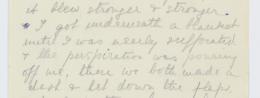 it blew stronger & stronger.
I got underneath a blanket
until I was nearly suffocated
& the perspiration was pouring
off me, then we both made a
dash & let down the flaps,